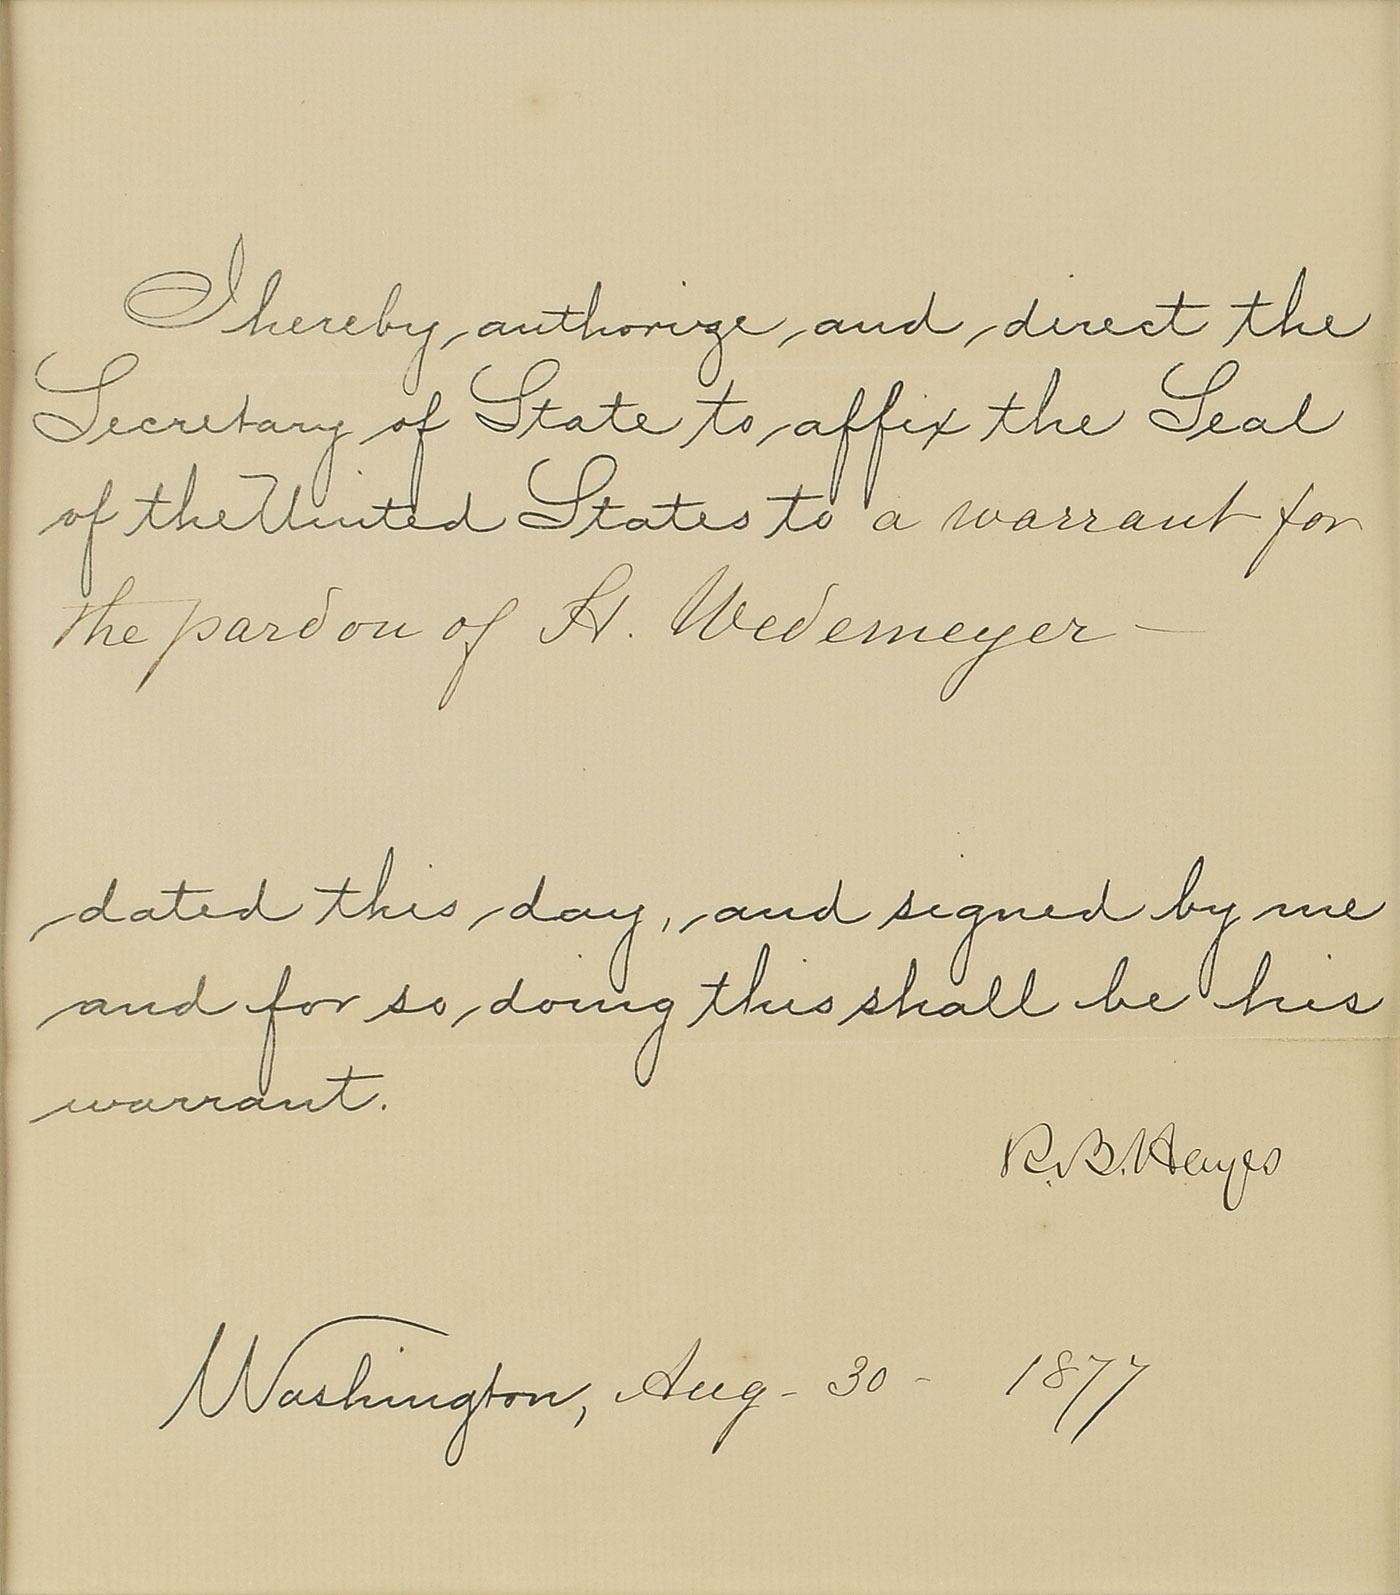 I hereby authorize and direct the
Secretary of State to affix the Seal
of the United States to a warrant for
the pardon of H. Wedemeyer —
dated this day, and signed by me
and for so doing this shall be his
warrant.
R. B. Hayes
Washington, Aug - 30 - 1877